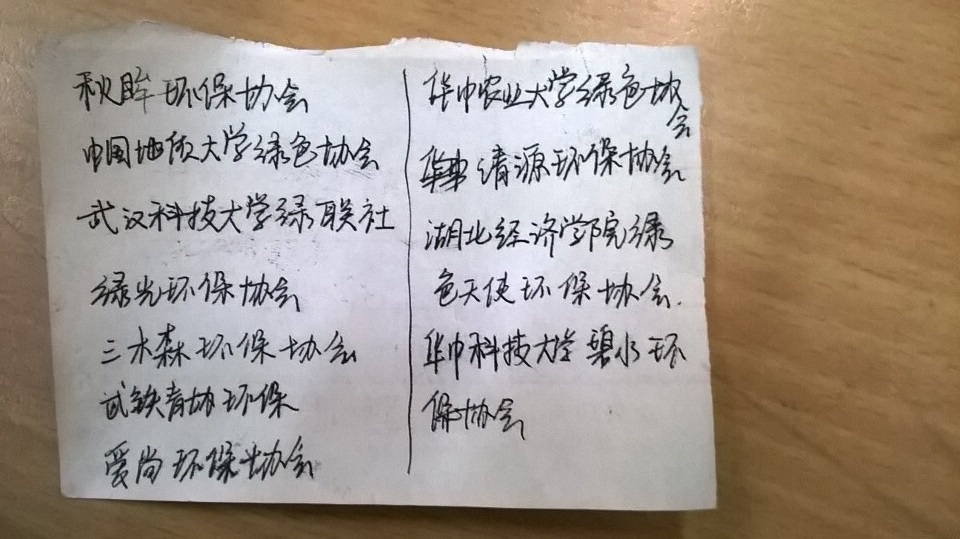 秋眸环保协会
中国地质大学绿色协会
武汉科技大学绿联社
绿光环保协会
三木森环保协会
武铁青协环保
爱尚环保协会
华中农业大学绿色协
会
清源环保协会
湖北经济学院绿
色天使环保协会.
华中科技大学碧水环
保协会